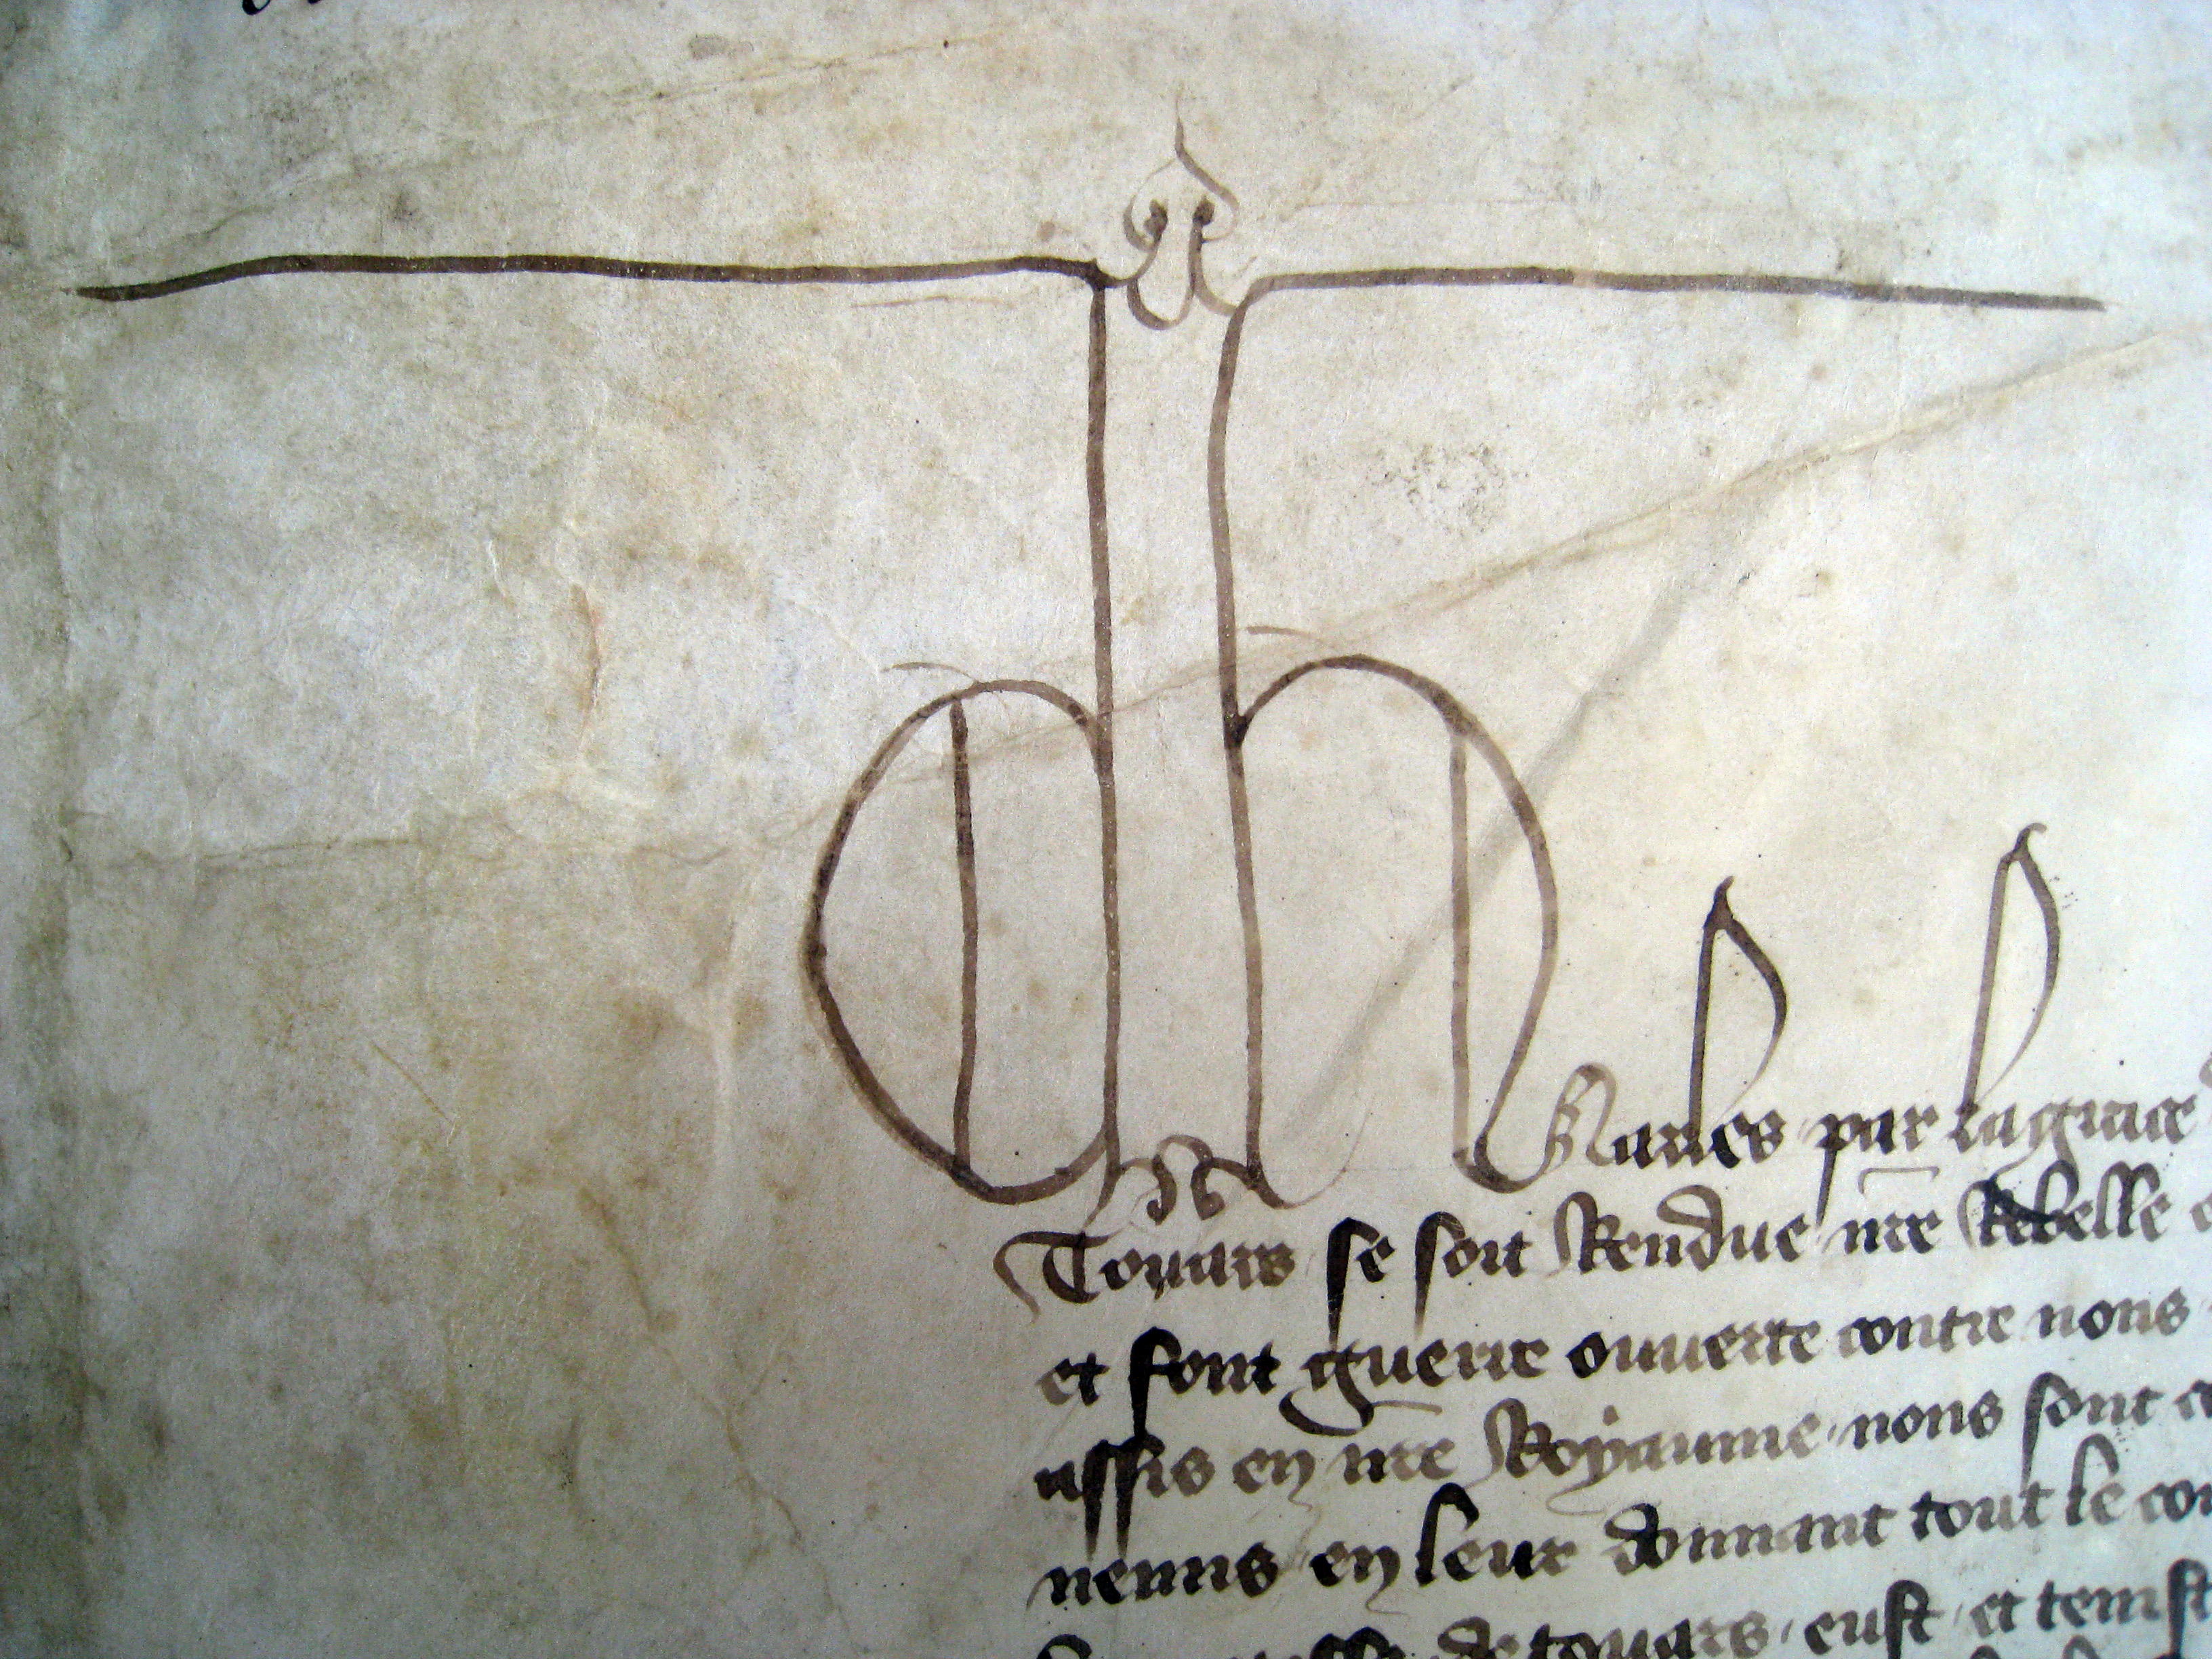 Charles par la grace
Touars se soit Rendue nre Rebelle
et font guerre ouuerte contre nous
assis en nre Royaume nous sont
nemis en leur donnant tout le con
de touars eust et tenist